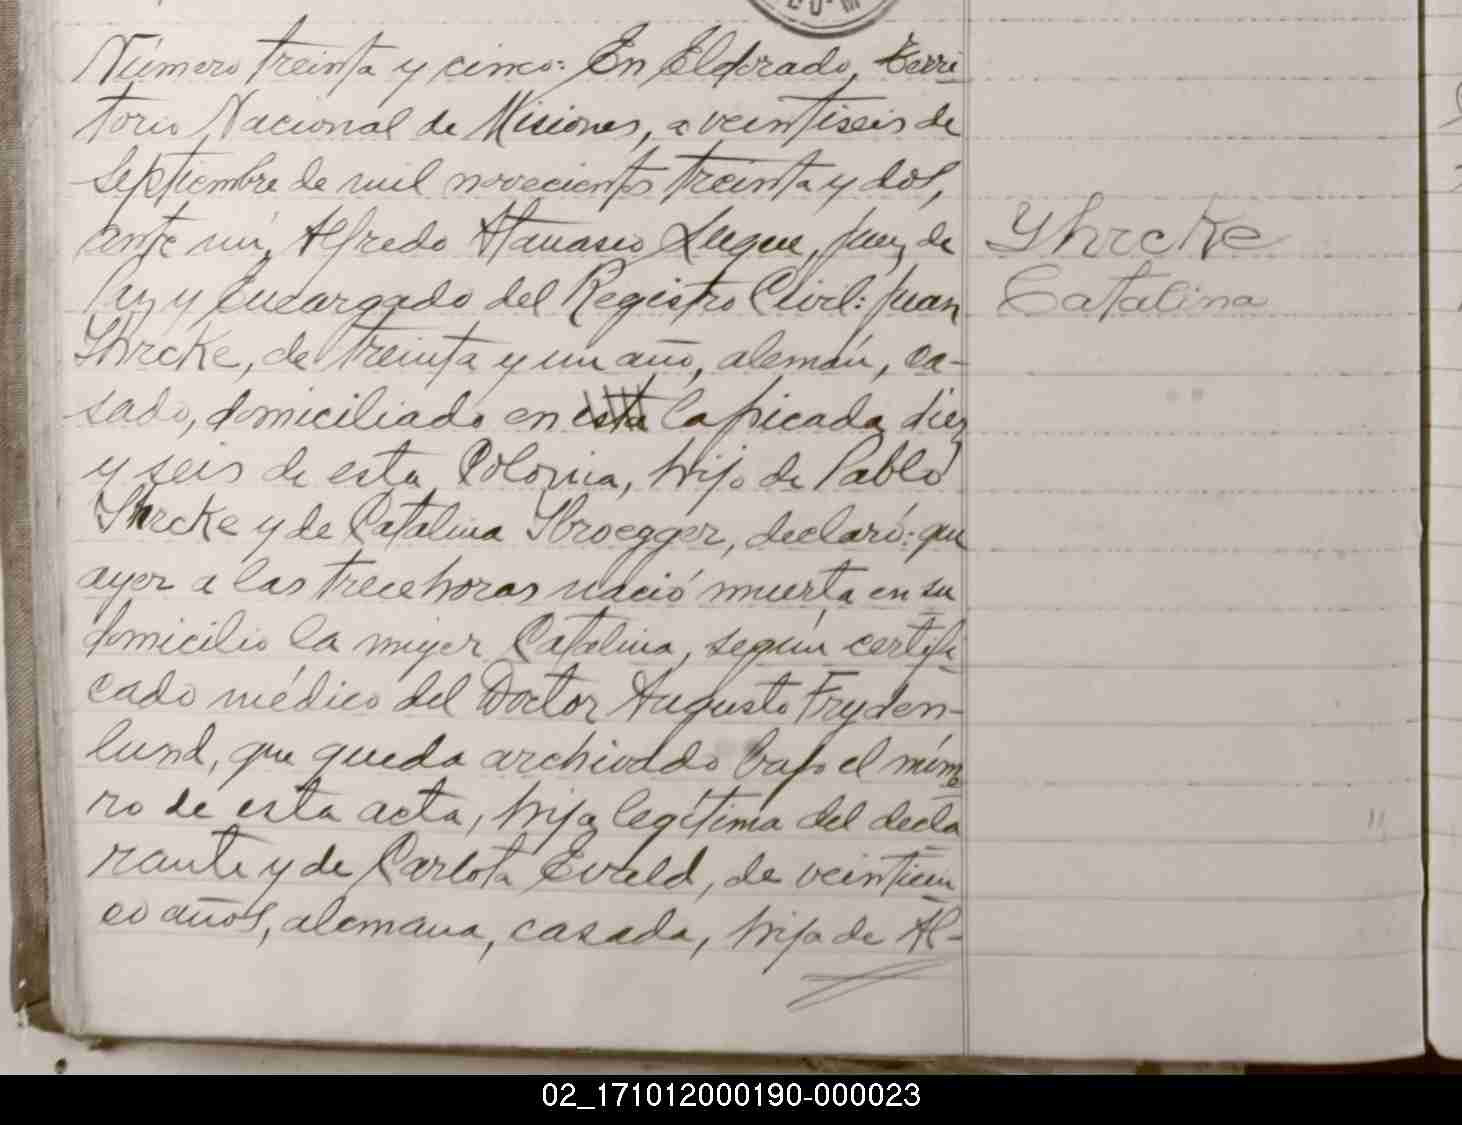 Número treinta y cinco: En Eldorado, Terri-
torio Nacional de Misiones, a veintiseis de
Septiembre de mil novecientos treinta y dos,
ante mí, Alfredo Atanasio Luque, Juez de
Paz y Encargado del Registro Civil: Juan
Yhrcke, de treinta y un año, alemán, ca-
sado, domiciliado en esta la picada diez
y seis de esta Colonia, hijo de Pablo
Yhrcke y de Catalina, declaró: que
ayer a las trece horas nació muerta en su
domicilio la mujer Catalina, según certifi-
cado médico del Doctor Augusto Fryden-
lund, que queda archivado bajo el núme
ro de esta acta, hija legítima del decla
rante y de Carlota Evald, de veinticin
co años, alemana, casada, hija de Al-
Yhrcke
Catalina
02_171012000190-000023